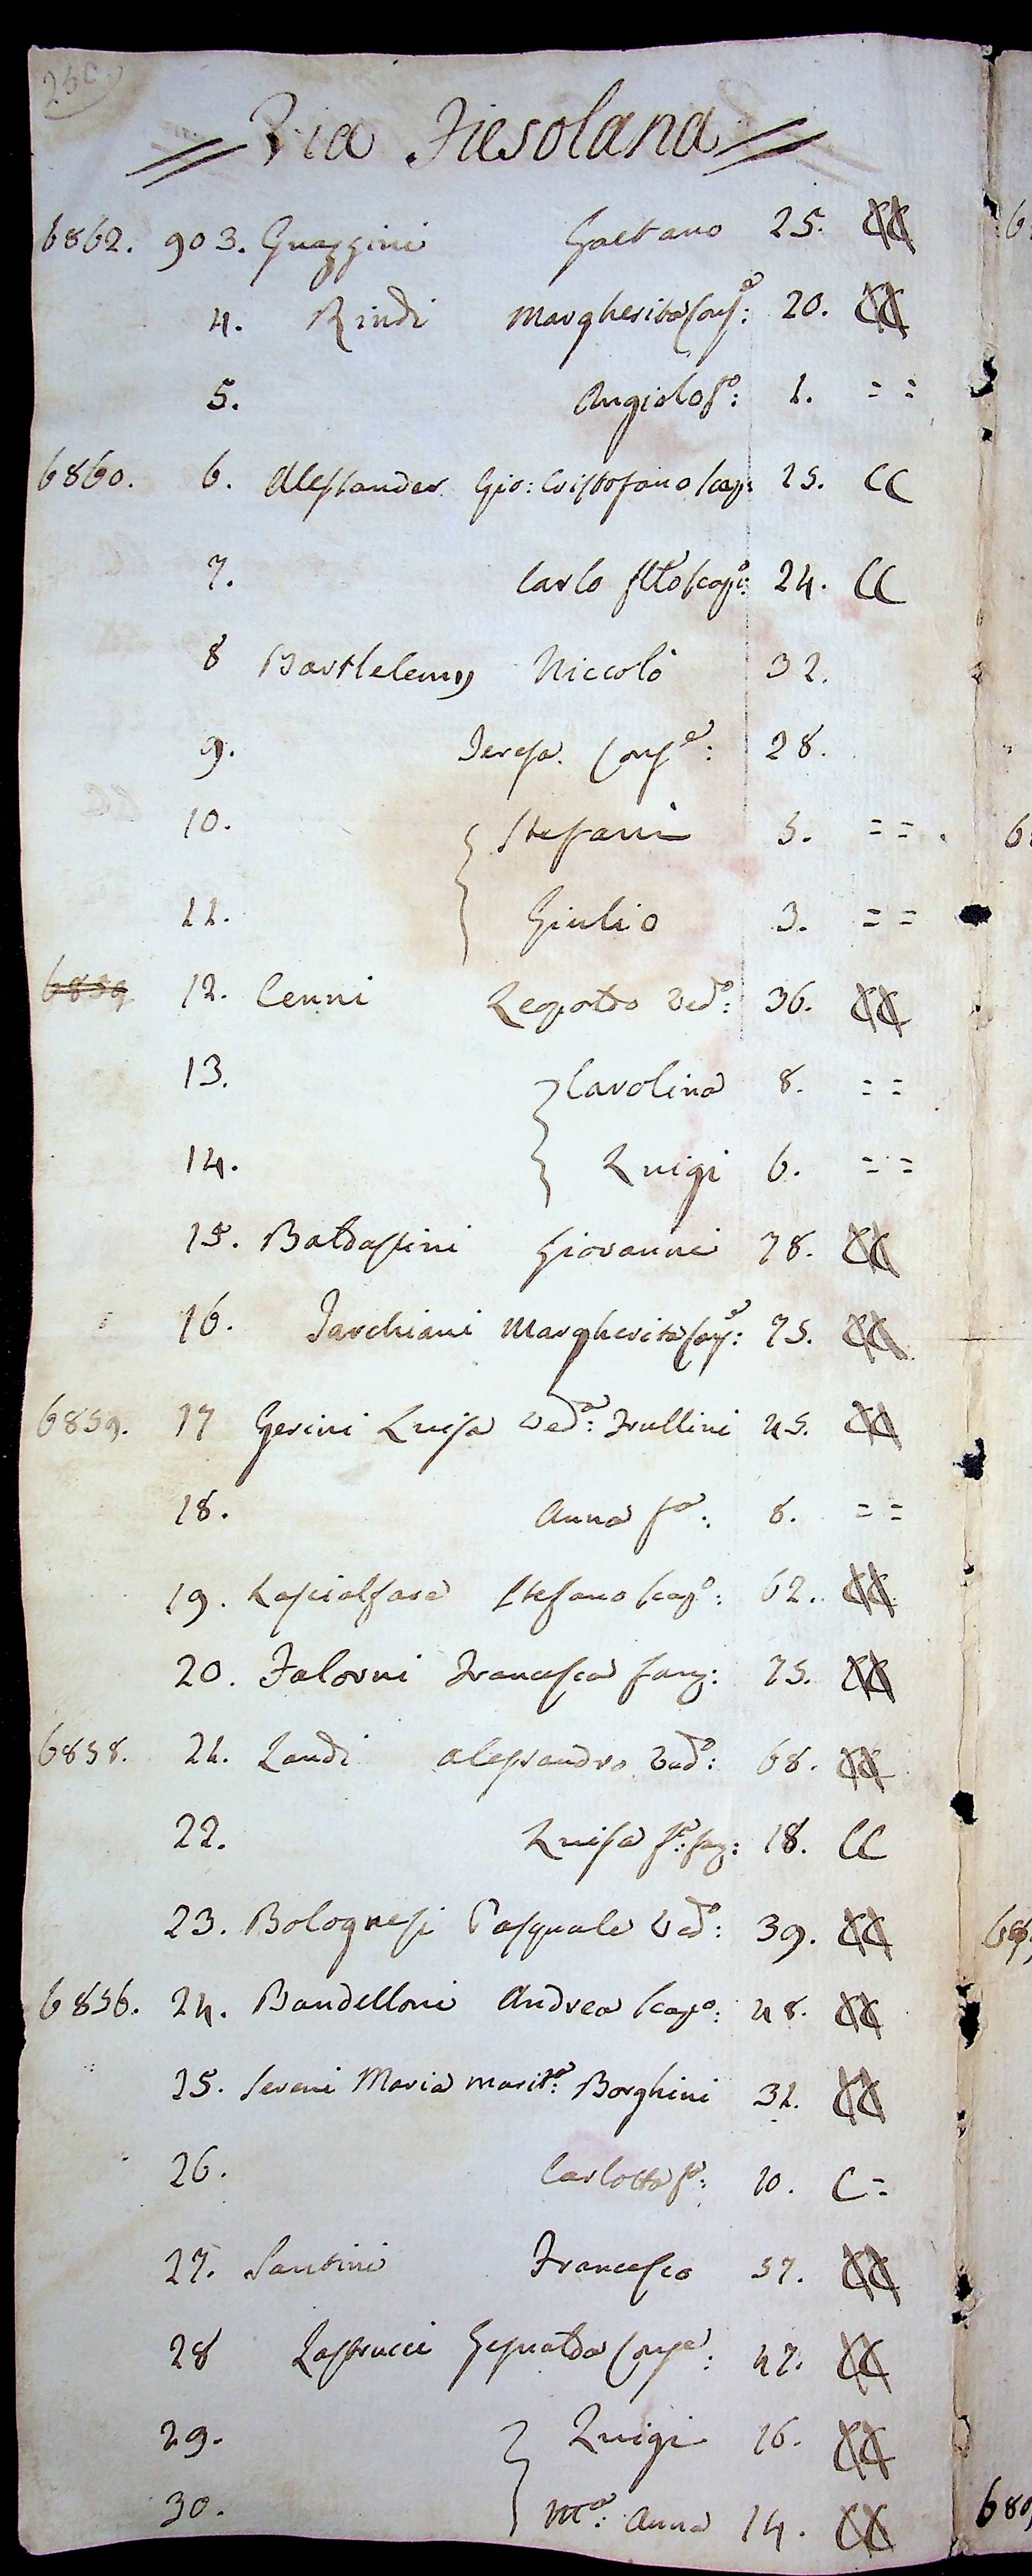 250.
Via Fiesolana
6862. 903. Guaggini Gaetano 25. CC
4. Rindi Margherita Conse: 20. CC
5. Angiolo fo: 1. = =
6860. 6. Alessander Gio: Cristofano scap: 25. CC
7. Carlo fllo scapo: 24. CC
8 Barthelemy Niccolò 32.
9. Teresa. Conse: 28.
10. Stefani 5. = =
11. Giulio 3. = =
6859 12. Cenni Leopoldo Vedo: 36. CC
13. Carolina 8. = =
14. Luigi 6. = =
15. Baldassini Giovanni 78. CC
16. Tarchiani Margherita Conse: 75. CC
6859. 17 Gerini Luisa Veda: Frullini 45. CC
18. Anna fa: 8. = =
19. Lascialfare Stefano scapo: 62. CC
20. Falorni Francesca fanz: 75. CC
6858. 21. Landi Alessandro Vedo: 68. CC
22. Luisa fa: fanz: 18. CC
23. Bolognesi Pasquale Vedo: 39. CC
6856. 24. Bandelloni Andrea scapo: 48. CC
25. Sereni Maria marita: Borghini 31. CC
26. Carlotta fa: 10. C =
27. Santini Francesco 57. CC
28 Lastrucci Gesualda Conse: 47. CC
29. Luigi 16. CC
30. Ma: Anna 14. CC